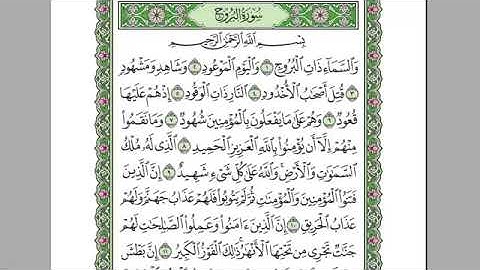 سُورَةُ الْبُرُوجِ
بِسْمِ اللَّهِ الرَّحْمَٰنِ الرَّحِيمِ
وَالسَّمَاءِ ذَاتِ الْبُرُوجِ ١ وَالْيَوْمِ الْمَوْعُودِ ٢ وَشَاهِدٍ وَمَشْهُودٍ
٣ قُتِلَ أَصْحَابُ الْأُخْدُودِ ٤ النَّارِ ذَاتِ الْوَقُودِ ٥ إِذْ هُمْ عَلَيْهَا
قُعُودٌ ٦ وَهُمْ عَلَىٰ مَا يَفْعَلُونَ بِالْمُؤْمِنِينَ شُهُودٌ ٧ وَمَا نَقَمُوا
مِنْهُمْ إِلَّا أَن يُؤْمِنُوا بِاللَّهِ الْعَزِيزِ الْحَمِيدِ ٨ الَّذِي لَهُ مُلْكُ
السَّمَاوَاتِ وَالْأَرْضِ وَاللَّهُ عَلَىٰ كُلِّ شَيْءٍ شَهِيدٌ ٩ إِنَّ الَّذِينَ
فَتَنُوا الْمُؤْمِنِينَ وَالْمُؤْمِنَاتِ ثُمَّ لَمْ يَتُوبُوا فَلَهُمْ عَذَابُ جَهَنَّمَ وَلَهُمْ
عَذَابُ الْحَرِيقِ ١٠ إِنَّ الَّذِينَ آمَنُوا وَعَمِلُوا الصَّالِحَاتِ لَهُمْ
جَنَّاتٌ تَجْرِي مِن تَحْتِهَا الْأَنْهَارُ ذَٰلِكَ الْفَوْزُ الْكَبِيرُ ١١ إِنَّ بَطْشَ